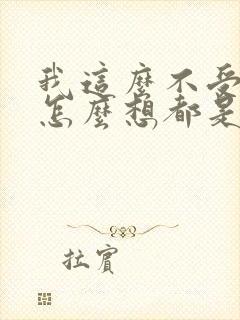 我這麼不受
怎麼想都是
拉賓